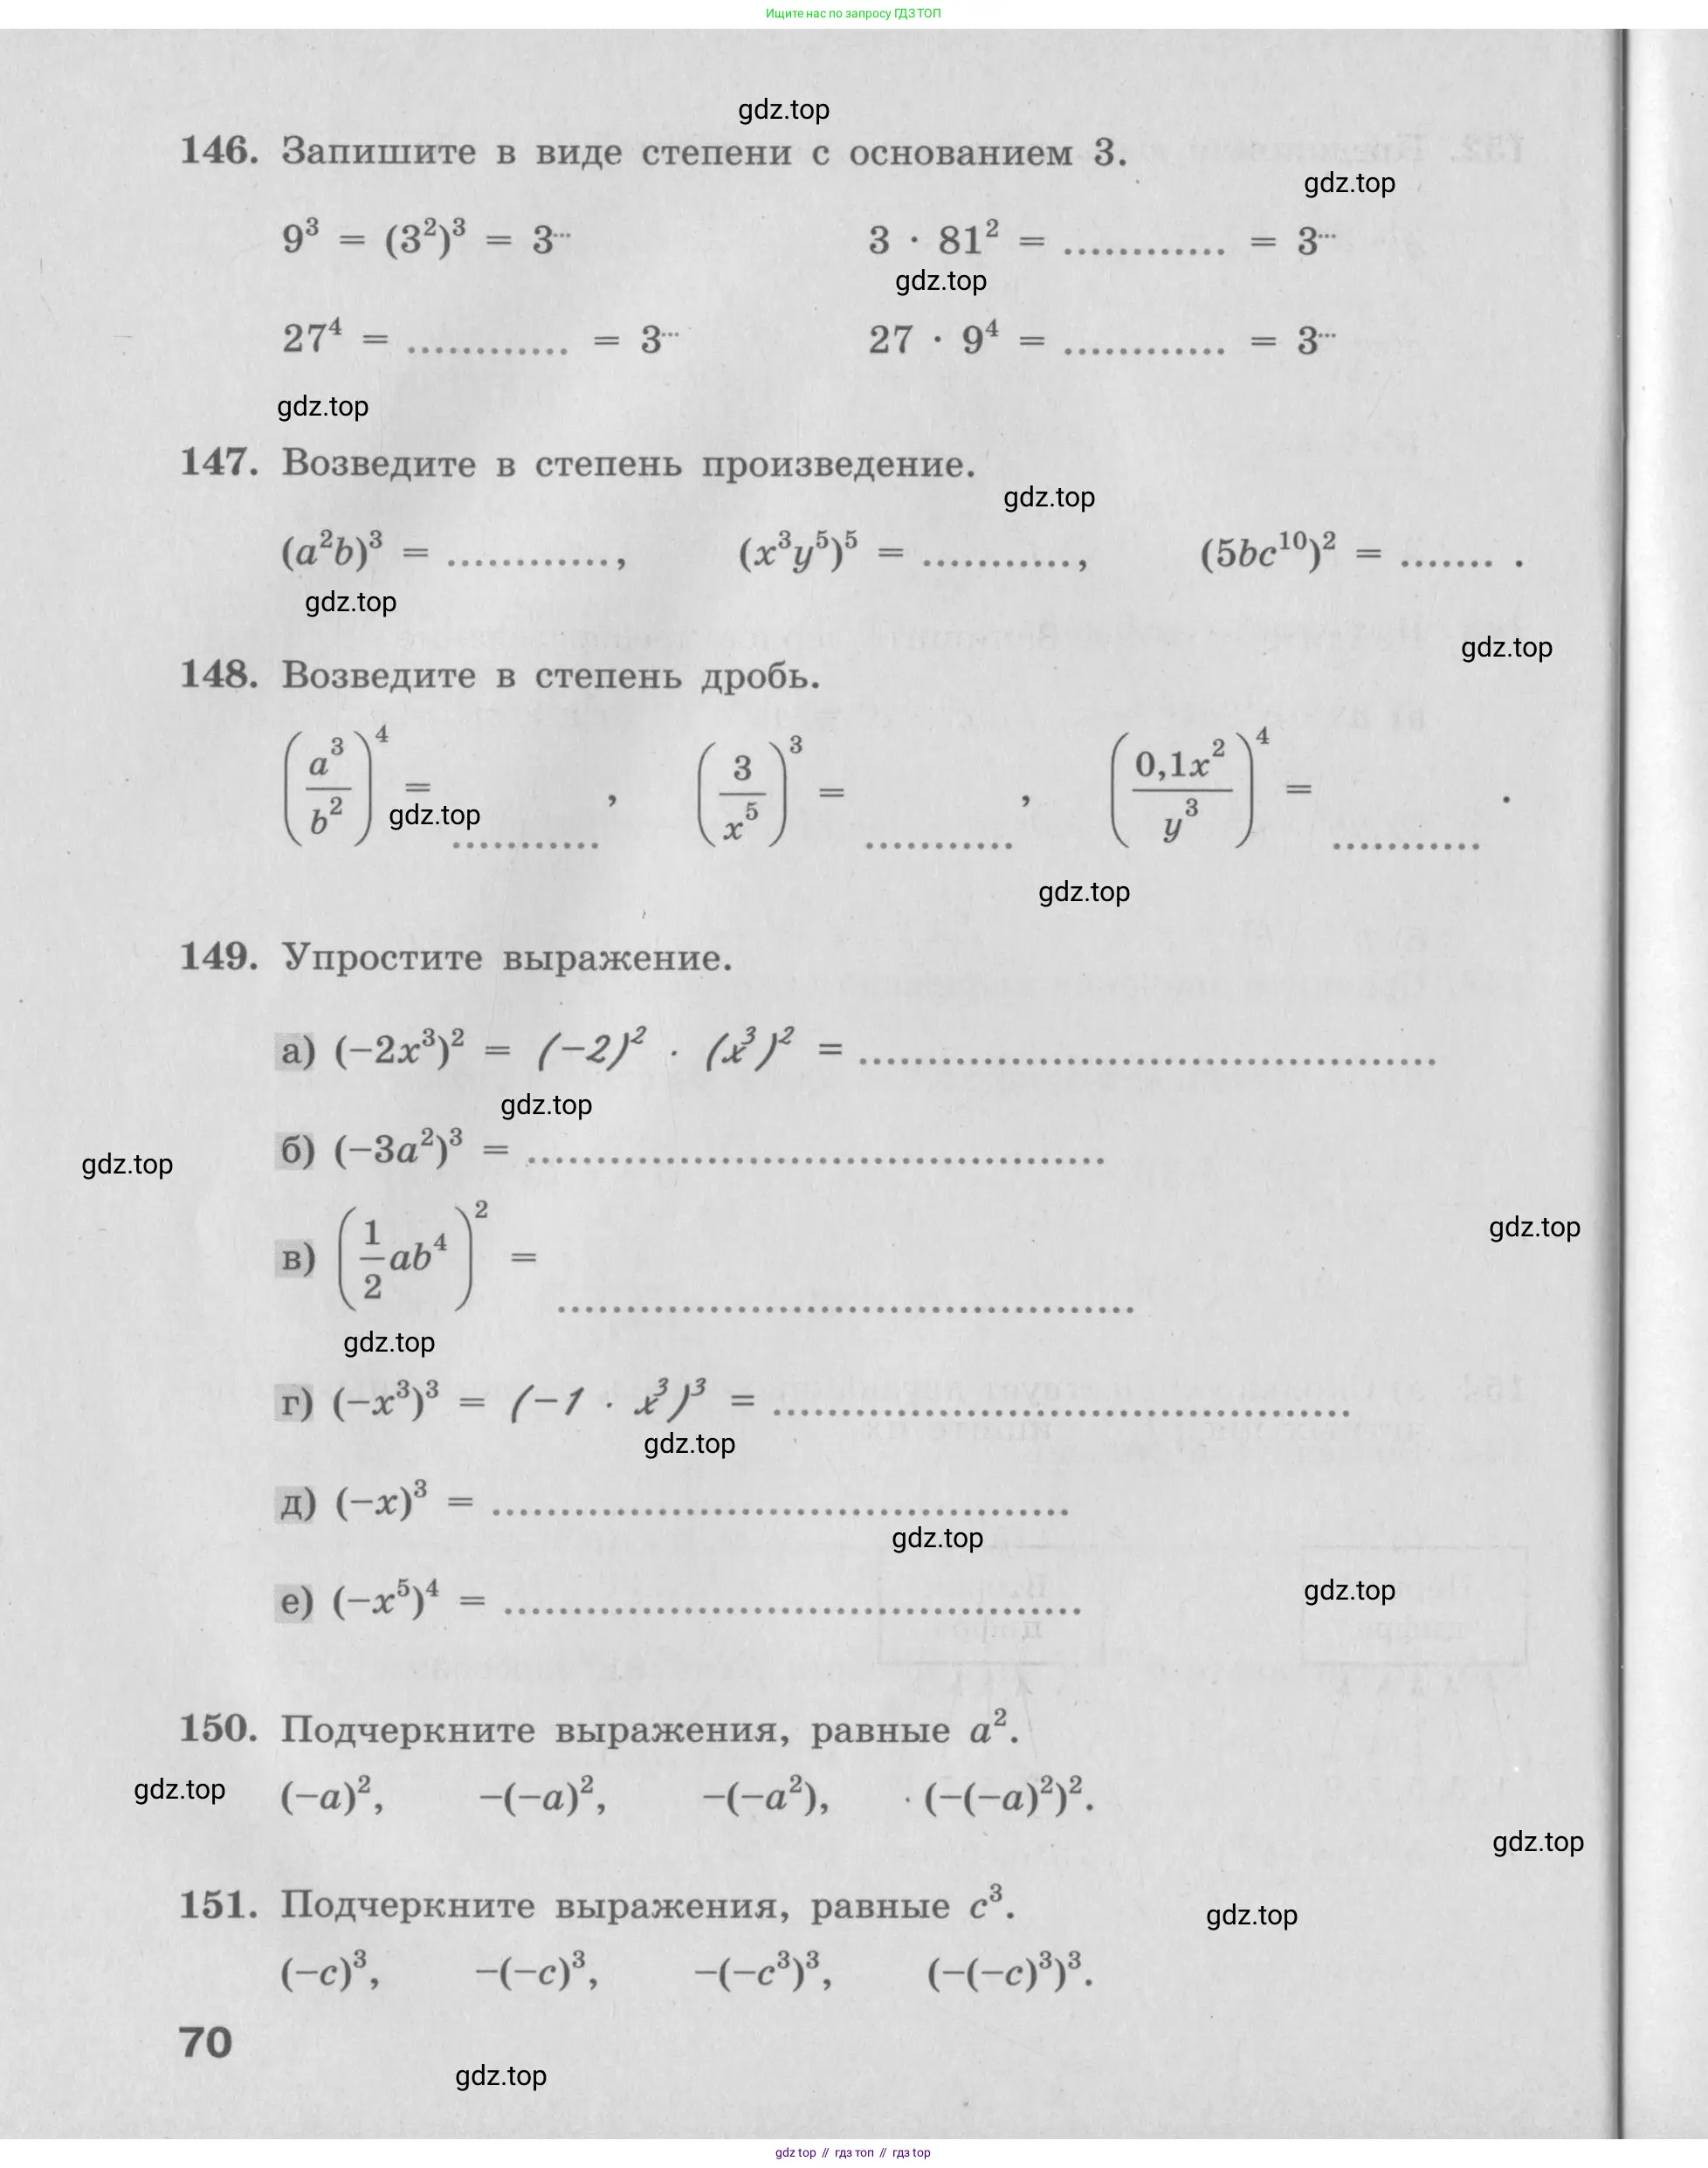 Ищите нас по запросу ГДЗ ТОП
gdz.top
146. Запишите в виде степени с основанием 3.
gdz.top
9³ = (3²)³ = 3··· 3 · 81² = ............ = 3···
gdz.top
27⁴ = ............ = 3··· 27 · 9⁴ = ............ = 3···
gdz.top
147. Возведите в степень произведение.
gdz.top
(a²b)³ = ............, (x³y⁵)⁵ = ..........., (5bc¹⁰)² = ....... .
gdz.top
gdz.top
148. Возведите в степень дробь.
(a³/b²)⁴ = ..........., (3/x⁵)³ = ..........., (0,1x²/y³)⁴ = ........... .
gdz.top
gdz.top
149. Упростите выражение.
а) (−2x³)² = (−2)² · (x³)² = ..........................................
gdz.top
б) (−3a²)³ = ..........................................
gdz.top
gdz.top
в) (1/2 ab⁴)² = ..........................................
gdz.top
г) (−x³)³ = (−1 · x³)³ = ..........................................
gdz.top
д) (−x)³ = ..........................................
gdz.top
gdz.top
е) (−x⁵)⁴ = ..........................................
150. Подчеркните выражения, равные a².
gdz.top
(−a)², −(−a)², −(−a²), (−(−a)²)².
gdz.top
151. Подчеркните выражения, равные c³.
gdz.top
(−c)³, −(−c)³, −(−c³)³, (−(−c)³)³.
70
gdz.top
gdz top // гдз топ // гдз top